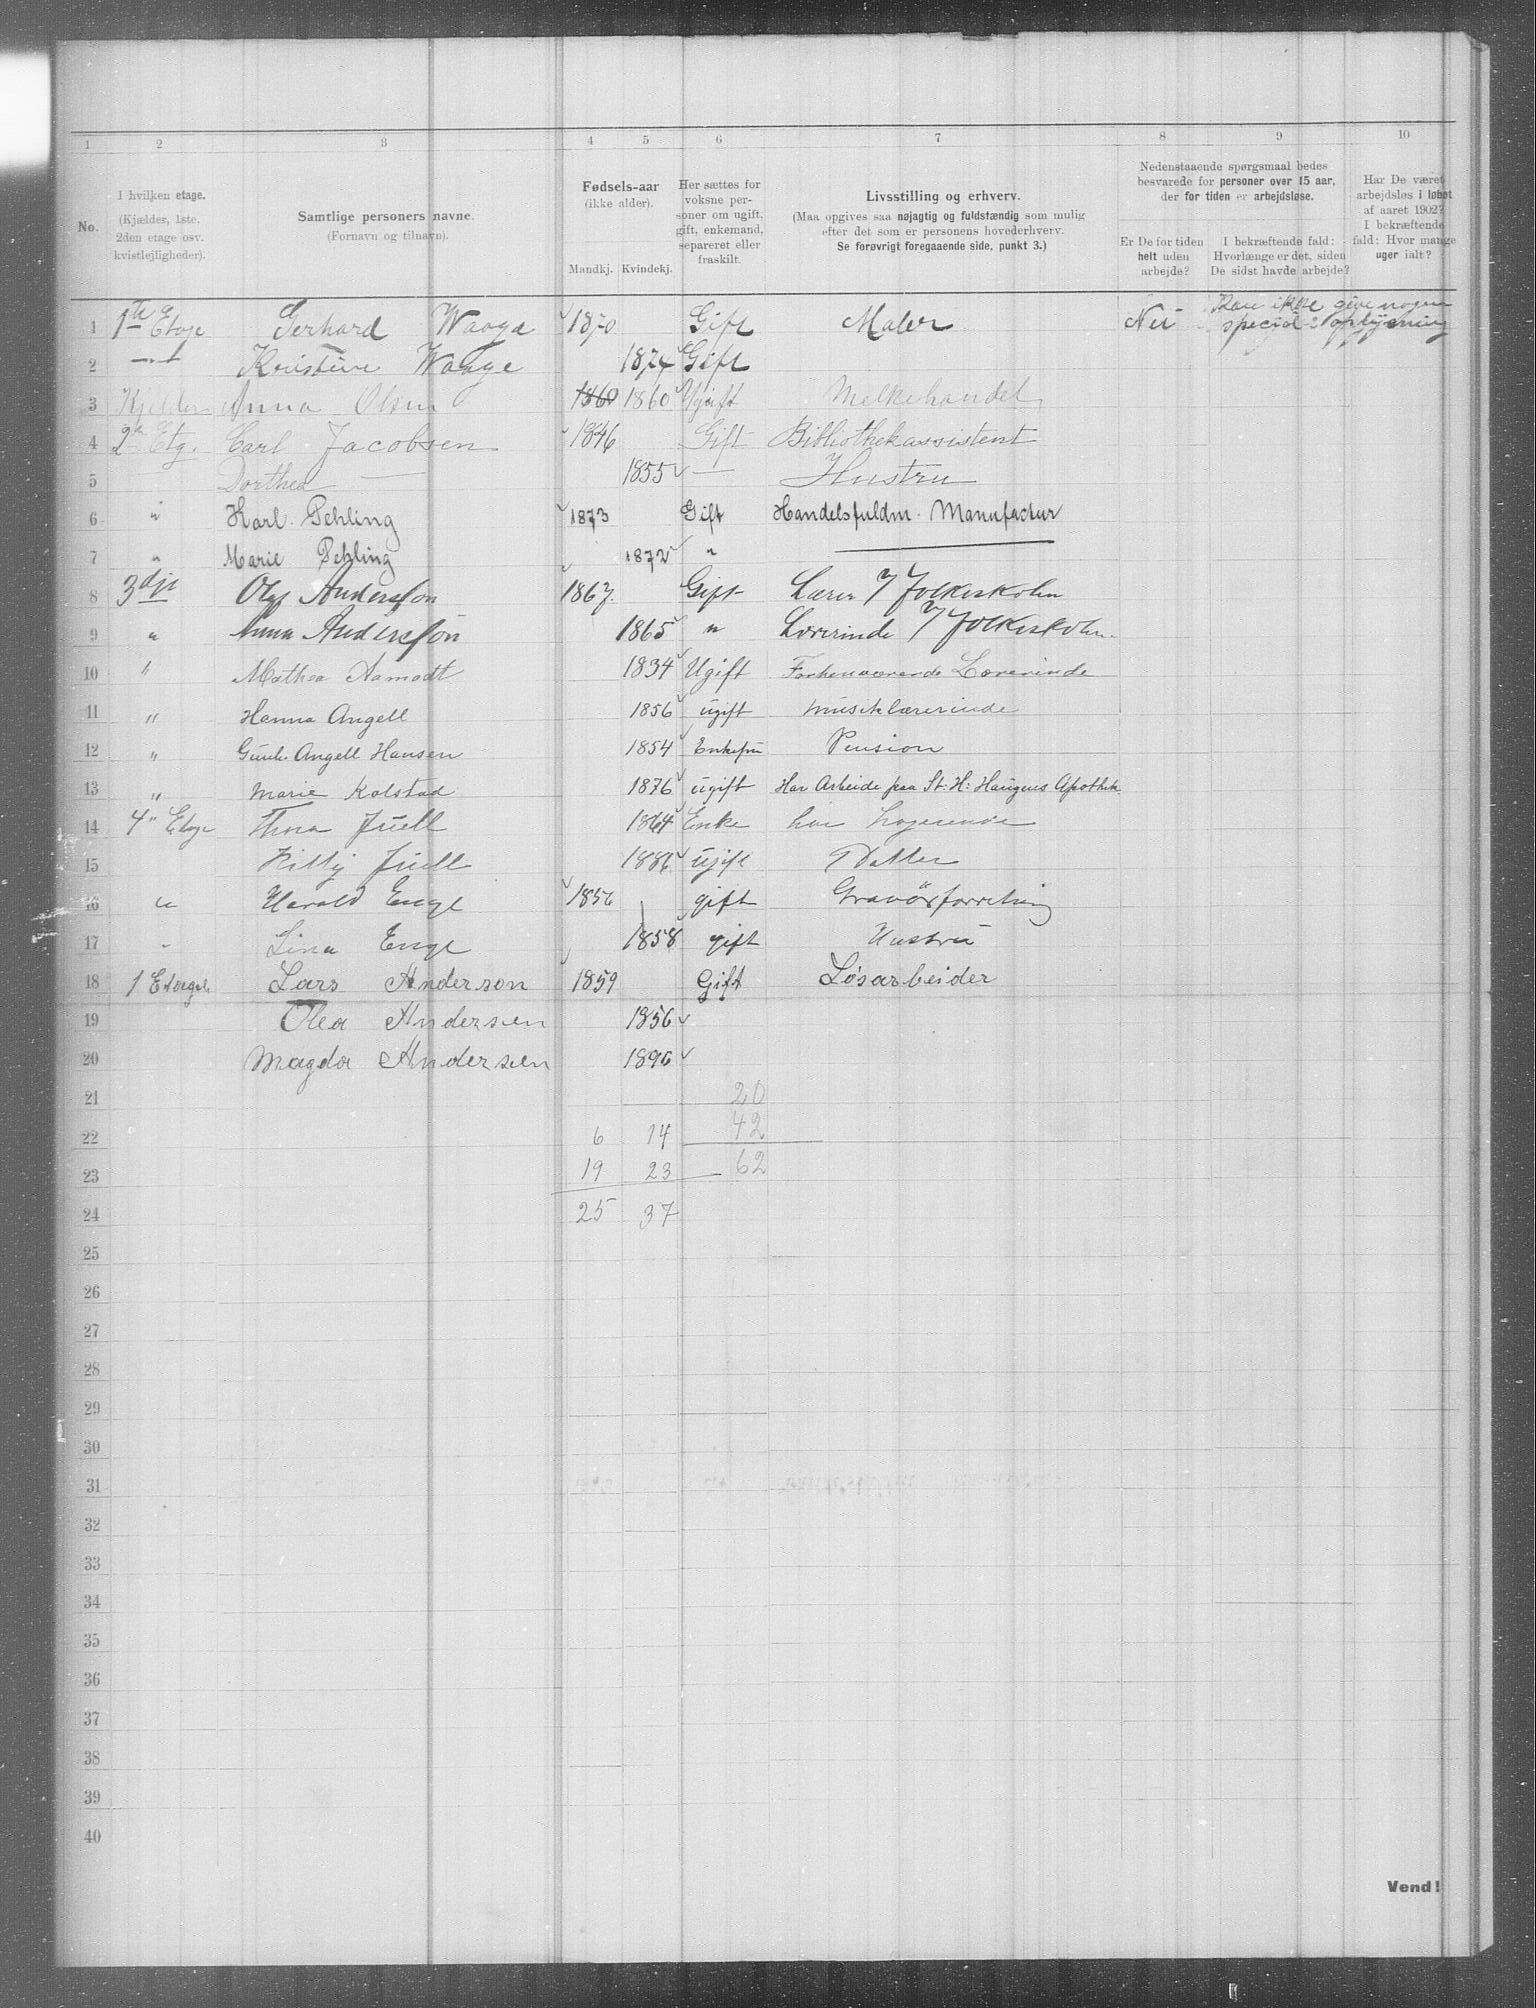 1 2 3 4 5 6 7 8 9 10
No.
I hvilken etage.
(Kjælder, 1ste,
2den etage osv.
kvistlejligheder).
Samtlige personers navne.
(Fornavn og tilnavn).
Fødsels-aar
(ikke alder).
Mandkj. Kvindekj.
Her sættes for
voksne per-
soner om ugift,
gift, enkemand,
separeret eller
fraskilt.
Livsstilling og erhverv.
(Maa opgives saa nøjagtig og fuldstændig som mulig
efter det som er personens hovederhverv.
Se forøvrigt foregaaende side, punkt 3.)
Nedenstaaende spørgsmaal bedes
besvarede for personer over 15 aar,
der for tiden er arbejdsløse.
Er De for tiden
helt uden
arbejde?
I bekræftende fald:
Hvorlænge er det, siden
De sidst havde arbejde?
Har De været
arbejdsløs i løbet
af aaret 1902?
I bekræftende
fald: Hvor mange
uger ialt?
1 1te Etage Gerhard Waage 1870 Gift Maler Nei Kan ikke give nogen speciel oplysning
2 -"- Kristine Waage 1874 Gift
3 Kjelder Anna Olsen 1860 1860 Ugift Melkehandel
4 2 Etg. Carl Jacobsen 1846 Gift Bibliothekassistent
5 Dorthea — 1855 — Hustru
6 " Karl Pehling 1873 Gift Handelsfuldm. Manufactur
7 " Marie Pehling 1872 " —
8 3dje Olaf Anderssøn 1867. Gift Lærer v/ Folkeskolen
9 " Anna Anderssøn 1865 " Lærerinde v/ Folkeskolen.
10 " Mathea Aamodt 1834 Ugift Forhenværende Lærerinde
11 " Hanna Angell 1856 ugift Musiklærerinde
12 " Gunh. Angell Hansen 1854 Enkefru Pension
13 " Marie Kolstad 1876 ugift Har Arbeide paa St: H: Haugens Apothek
14 4" Etage Thora Juell 1864 Enke har Logerende
15 Kitty Juell 1886 ugift Datter
16 " Harald Enge 1856 gift Gravørforretning
17 " Lina Enge 1858 gift Hustru
18 1 Etage Lars Anderson 1859 Gift Løsarbeider
19 Olea Andersen 1856
20 Magda Andersen 1896
21 20
22 6 14 42
23 19 23 62
24 25 37
25
26
27
28
29
30
31
32
33
34
35
36
37
38
39
40
Vend!